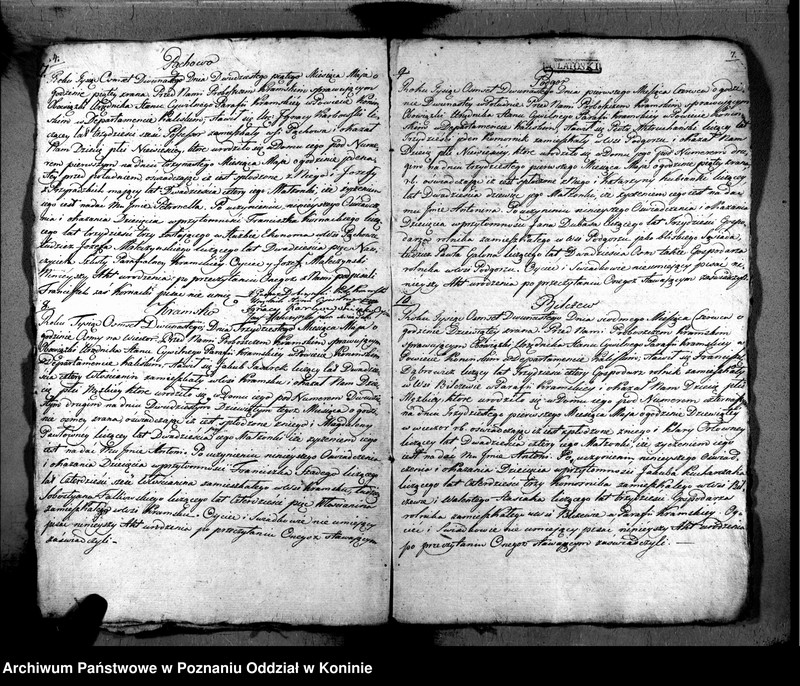 4.
Pąchowo
7. Roku Tysiąc Osmset Dwunastego Dnia Dwudziestego piątego Miesiąca Maja o
godzinie piątey zrana Przed Nami Proboszczem Kramskim sprawuiącym
Obowiązki Urzędnika Stanu Cywilnego Parafii Kramskiey w Powiecie Konin
skim Departamencie Kaliskim, Stawił się Ignacy li
czący lat trzydzieści sześć zamieszkały wsi Pąchowa i okazał
Nam Dziecię płci Niewieściey, które urodziło się w Domu iego pod Nume
rem pierwszym na dniu trzynastego Miesiąca Maja o godzinie jedena
stey przed południem oświadczaiąc iż iest spłodzone z Niego i Jozefy
z maiący lat Dwadzieścia cztery iego Małżonki, iże życzeniem
iego iest nadać mu Jmie Petronella. Po uczynieniu ninieyszego Oświadcze
nia i okazania Dziecięcia w przytomności Franciszka Kornackiego liczą
cego lat trzydzieści trzy
tudzież Jozefa Matczyńskiego liczącego lat Dwadzieścia pięć Nau
czyciela Szkoły Parafialney Kramskiey Oyciec y Jozef Matczyński
Ninieyszy Akt urodzenia po przeczytaniu Onegoż z Nami podpisali
Franciszek zaś Kornacki pisać nie umie
8.
Kramsko
Roku Tysiąc Osmset Dwunastego, Dnia Trzydziestego Miesiąca Maja o
godzinie Osmy na Wieczor. Przed Nami Proboszczem Kramskim sprawuiącym
Obowiązki Urzędnika Stanu Cywilnego Parafii Kramskiey w Powiecie Koninskim
Departamencie Kaliskim, Stawił się Jakub liczący lat Dwadzie
ścia cztery Włościanin zamieszkały w wsi Kramsku, i okazał Nam Dzie
cię płci Męzkiey które urodziło się w Domu iego pod Numerem Dwudzie
stym drugim na dniu Dwudziestym Dziewiątym tegoż Miesiąca o godzi
nie osmey zrana, oświadczaiąc iż iest spłodzone z niego i Magdaleny
Pawłowney liczącey lat Dwadzieścia iego Małżonki iże życzeniem iego
iest nadać Mu Jmie Antoni. Po uczynieniu ninieyszego Oświadczenia
i okazania Dziecięcia w przytomności Franciszka liczącego
lat Czterdzieści sześć Włościanina zamieszkałego w wsi Kramsku, tudzież
Sobestyana liczącego lat Czterdzieści pięć Włościanina
zamieszkałego w wsi Kramsku. Oyciec i Świadkowie nie umieiący
pisać ninieyszy Akt urodzenia po przeczytaniu Onegoż stawaiącym
zaświadczyli. -
7.
9.
Podgor
Roku Tysiąc Osmset Dwunastego Dnia pierwszego Miesiąca Czerwca o godzi
nie Dwunastey w Południe Przed Nami Proboszczem Kramskim sprawuiącym
Obowiązki Urzędnika Stanu Cywilnego Parafii Kramskiey w Powiecie Konin
skim Departamencie Kaliskim, Stawił się Piotr liczący lat
Trzydzieści ieden Komornik zamieszkały w wsi Podgorzu, i okazał Nam
Dziecię płci Niewieściey, które urodziło się w Domu iego pod Numerem dru
gim na dniu trzydziestego pierwszego Miesiąca Maja o godzinie piątey zrana
r. b. oświadczaiąc iż iest spłodzone z niego i Katarzyny liczącey
lat Dwadzieścia dziewięć iego Małżonki, iże życzeniem iego iest nadać
mu Jmie Antonina. Po uczynieniu ninieyszego Oświadczenia i okazania
Dziecięcia w przytomności Jana liczącego lat Trzydzieści Gospo
darza rolnika zamieszkałego w wsi Podgorzu iako bliskiego Sąsiada,
tudzież Pawła liczącego lat Dwadzieścia Osm także Gospodarza
rolnika w wsi Podgorzu. Oyciec i Świadkowie nieumieiący pisać ni
nieyszy Akt urodzenia po przeczytaniu Onegoż stawaiącym zaświadczyli.
10.
Bilczew
Roku Tysiąc Osmset Dwunastego Dnia siodmego Miesiąca Czerwca o
godzinie Dziewiątey zrana. Przed Nami Proboszczem Kramskim
sprawuiącym Obowiązki Urzędnika Stanu Cywilnego Parafii Kramskiey w
Powiecie Koninskim Departamencie Kaliskim, Stawił się Franciszek
Dąbrowicz liczący lat Trzydzieści Gospodarz rolnik zamieszkały
w wsi Bilczewie w Parafii Kramskiey i okazał Nam Dziecię płci
Męzkiey, które urodziło się w Domu iego pod Numerem czternastym
na dniu Trzydziestego pierwszego Miesiąca Maja o godzinie Dziewiątey
w wieczor r. b. oświadczaiąc iż iest spłodzone z niego i Klary
liczącey lat Dwadzieścia cztery iego Małżonki, iże życzeniem iego
iest nadać Mu Jmie Antoni. Po uczynieniu ninieyszego Oświad
czenia i okazania Dziecięcia w przytomności Jakuba Kucharskiego
liczącego lat Czterdzieści trzy Komornika zamieszkałego w wsi Bil
czewie i Walentego liczącego lat trzydzieści Gospodarza
rolnika zamieszkałego w wsi Bilczewie w Parafii Kramskiey. Oy
ciec i Świadkowie nie umieiący pisać, ninieyszy Akt urodzenia
po przeczytaniu Onegoż stawaiącym zaświadczyli. -
Archiwum Państwowe w Poznaniu Oddział w Koninie